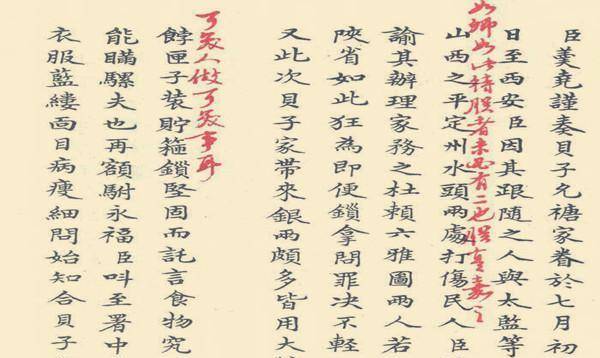 臣羹堯謹奏貝子允禟家眷於七月初
日至西安臣因其跟隨之人與太藍等
如卿如此待朕者未必有二也朕實嘉之
山西之平定州水頭兩處打傷民人臣
諭其辦理家務之杜賴六雅圖兩人若
陝省如此狂為即便鎖拿問罪決不輕
又此次貝子家帶來銀兩頗多皆用大
可笑人做可笑事耳
餑匣子裝貯箍鎖堅固而託言食物究
能瞞騾夫也再額駙永福臣呌至署中
衣服藍縷面目病瘦細問始知合貝子